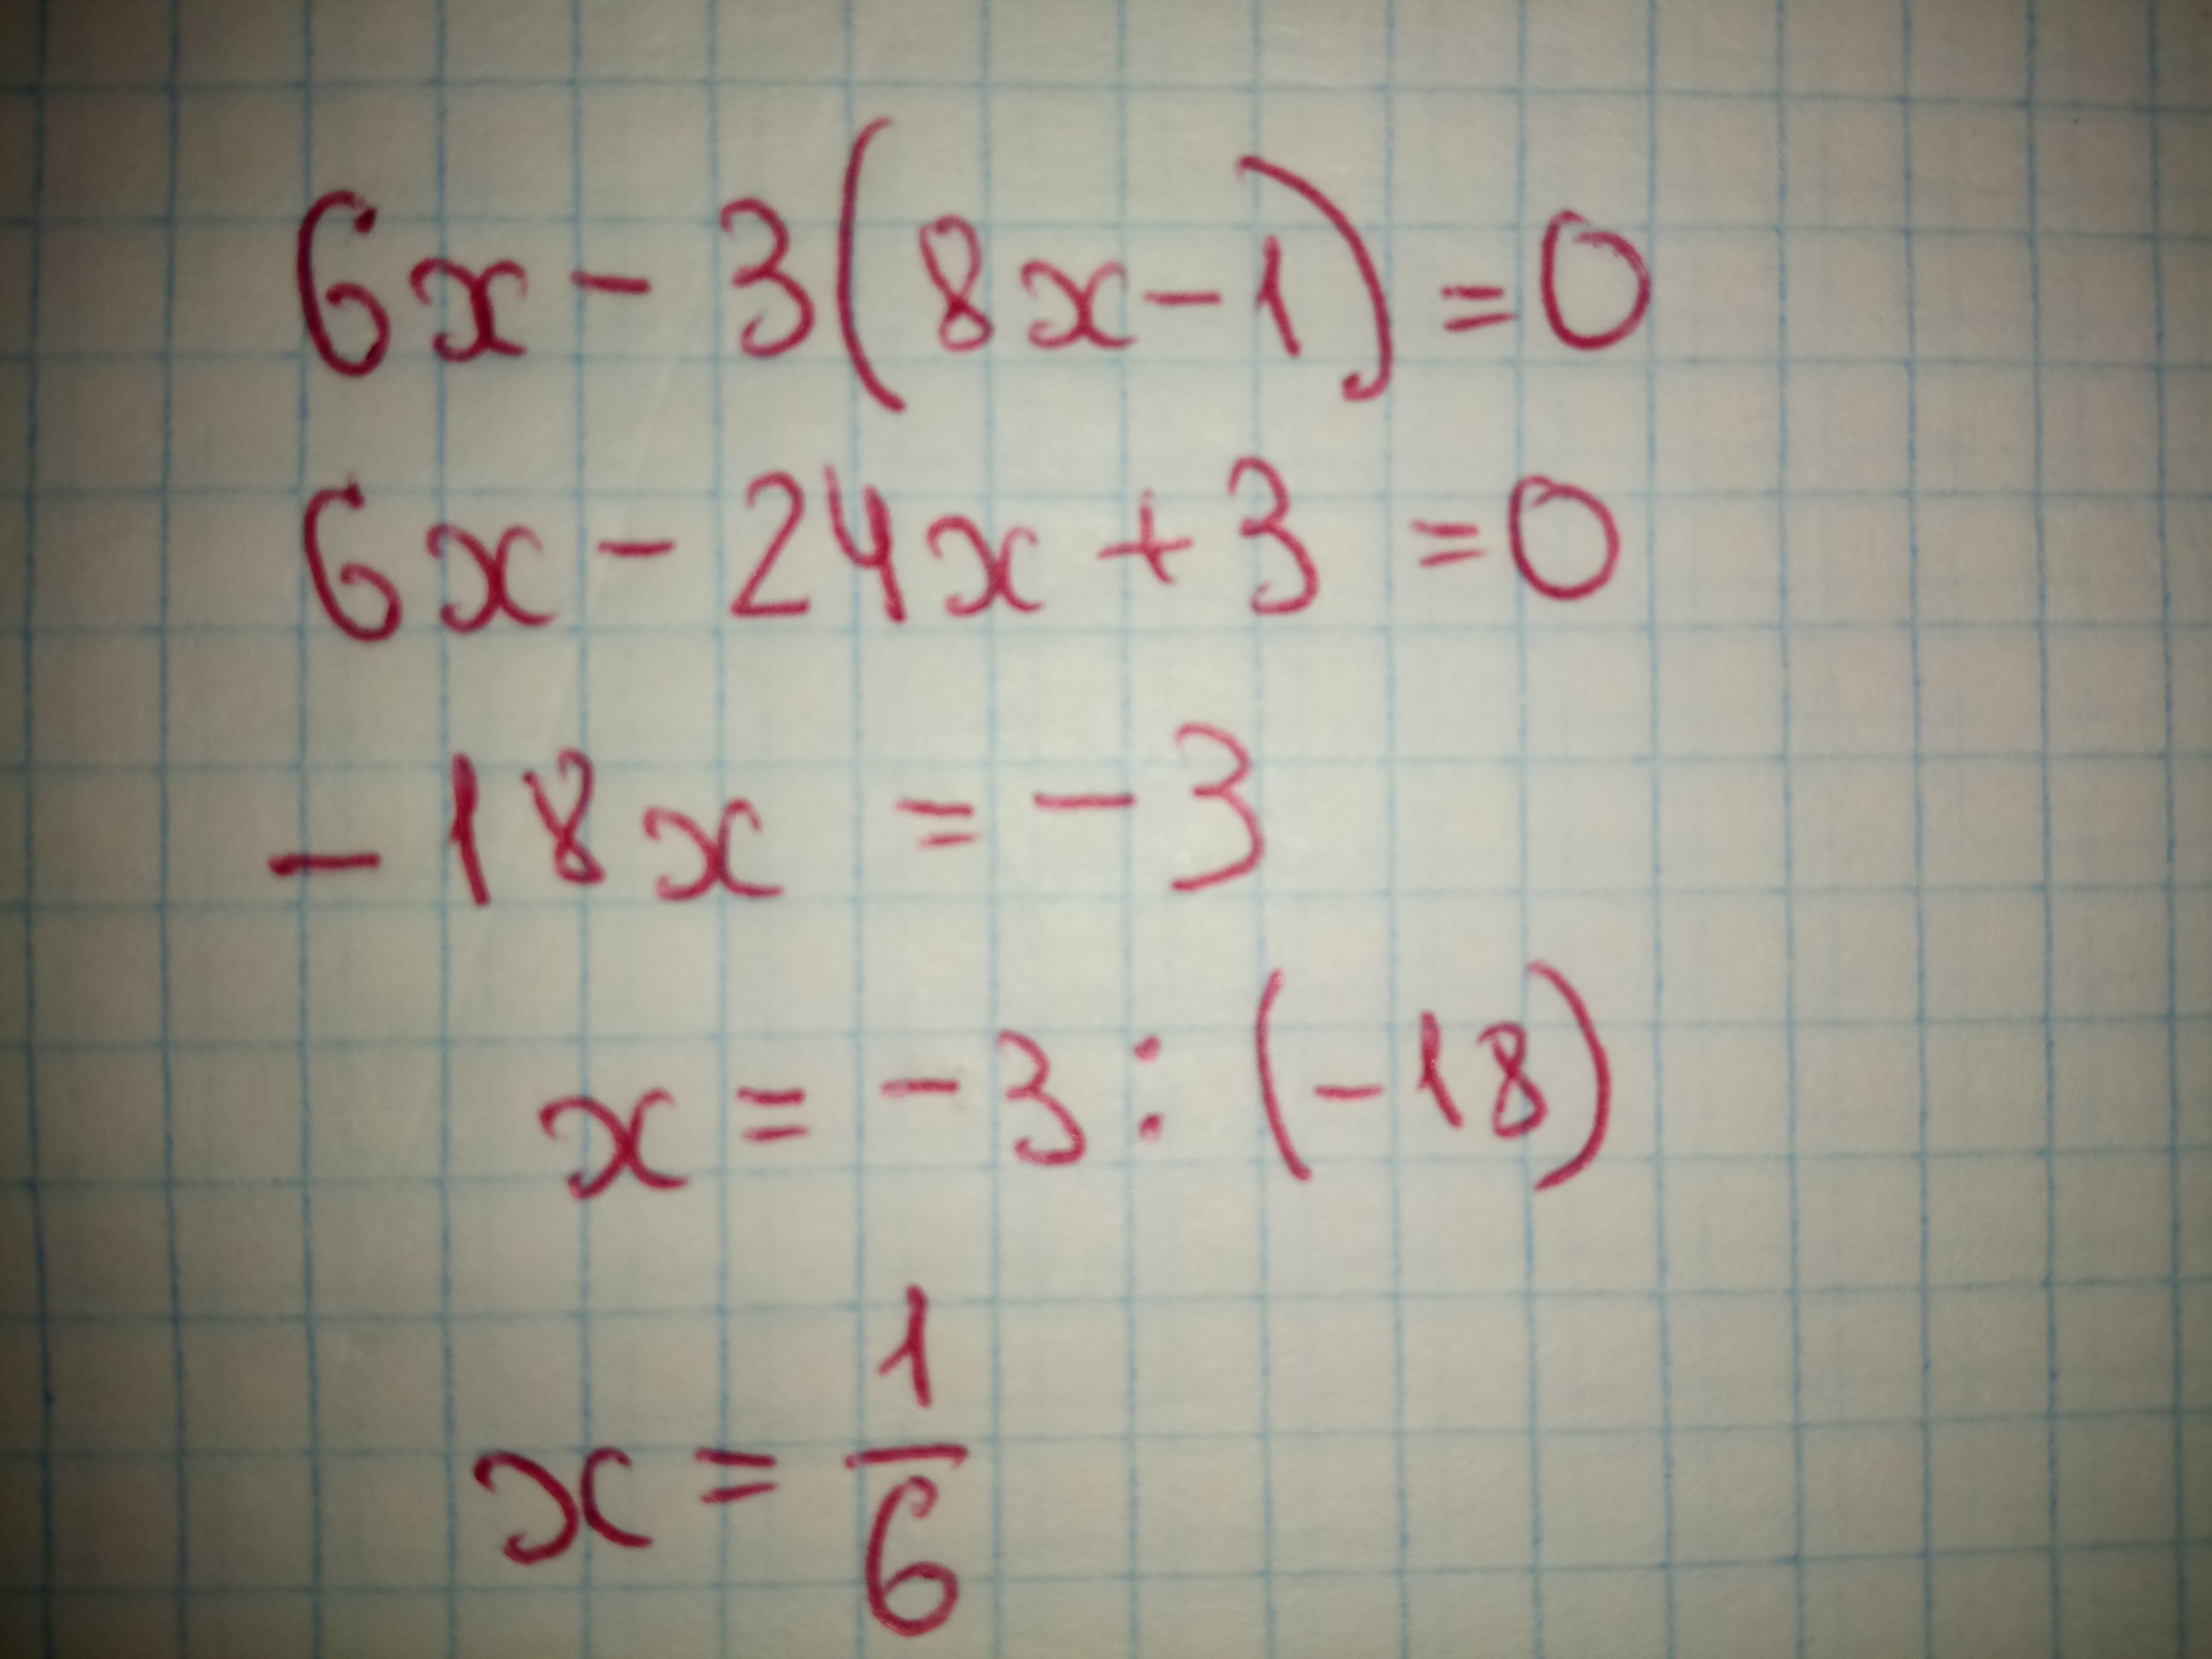 6x - 3(8x - 1) = 0
6x - 24x + 3 = 0
- 18x = - 3
x = - 3 : (- 18)
x = 1/6